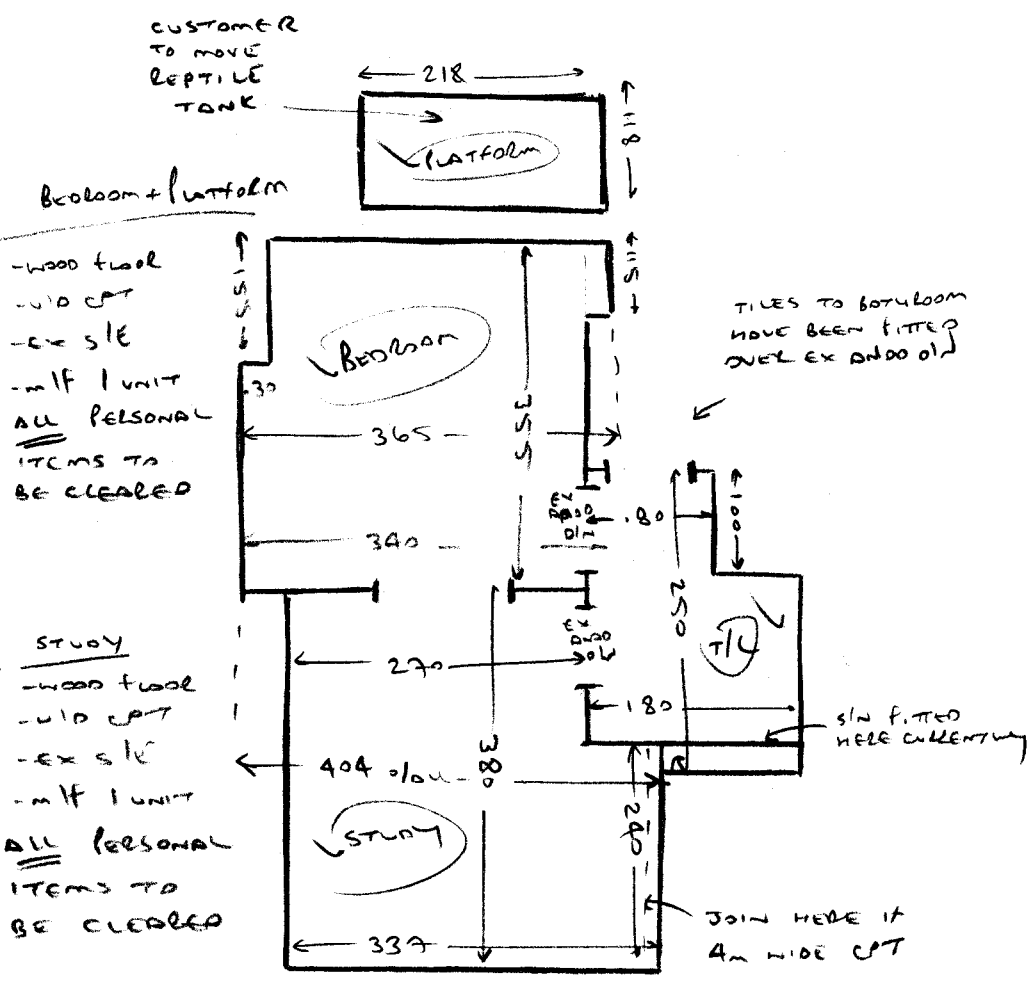 CUSTOMER
TO MOVE
REPTILE
TANK
218
118
PLATFORM
BEDROOM + PLATFORM
- WOOD FLOOR
- U/D CPT
- EX S/E
- M/F 1 UNIT
ALL PERSONAL
ITEMS TO
BE CLEARED
155
115
30
BEDROOM
365
355
340
TILES TO BATHROOM
HAVE BEEN FITTED
OVER EX
EX
80
100
250
T/L
180
S/N FITTED
HERE CURRENTLY
EX
270
STUDY
- WOOD FLOOR
- U/D CPT
- EX S/E
- M/F 1 UNIT
ALL PERSONAL
ITEMS TO
BE CLEARED
404
380
240
STUDY
337
JOIN HERE IF
4M WIDE CPT